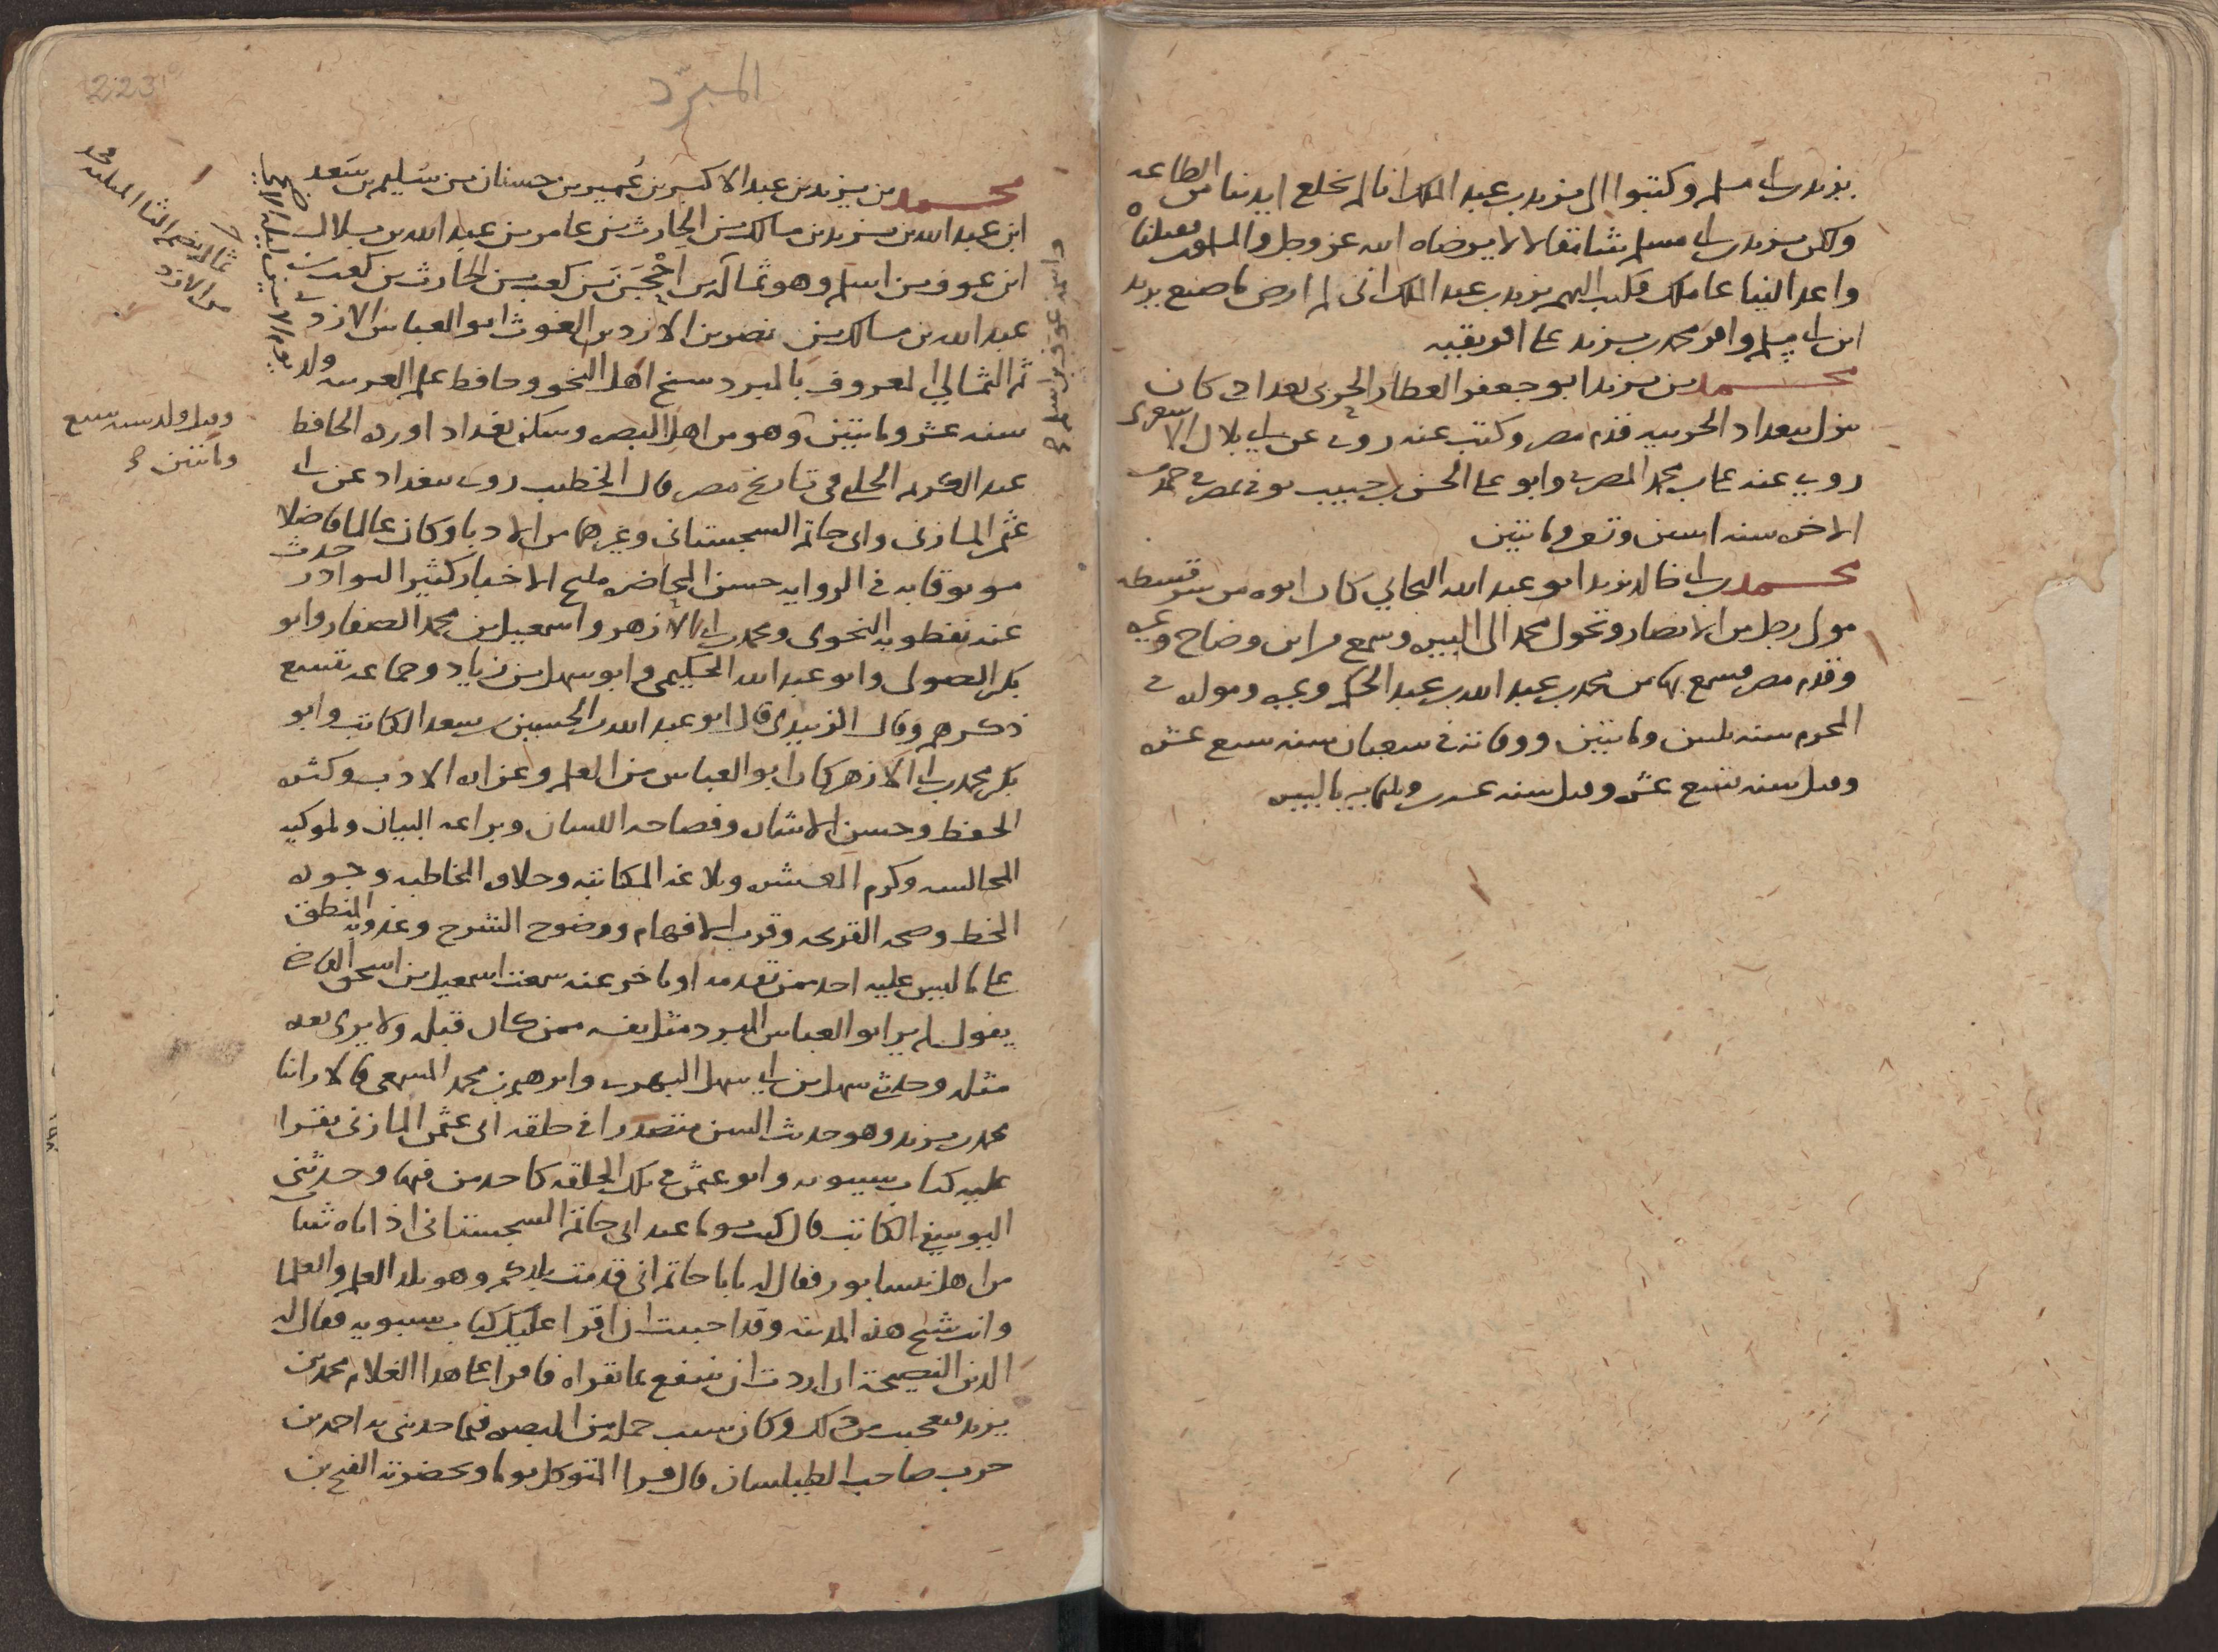 يزيد بن ابي مسلم وكتبوا الى يزيد بن عبد الملك انا لم نخلع ايدينا من الطاعه
ولكن يزيد بن ابي مسلم سامنا ما لا يرضاه الله عز وجل والمسلمون فقتلناه
واعدنا الينا عاملك فكتب اليهم يزيد بن عبد الملك انى لم ارض ما صنع يزيد
ابن ابي مسلم واقر محمد بن يزيد على افريقيه
محمد بن يزيد ابو جعفر العطار الحربى بغدادى كان
ينزل ببغداد الحربيه قدم مصر وكتب عنه روى عن ابي بلال الاشعرى
روى عنه على بن محمد المصرى وابو على الحسن بن حبيب توفى بمصر فى جمادى
الاخره سنه اثنين وتسعين ومائتين
محمد بن ابي خالد يزيد ابو عبد الله البجاني كان ابوه من سرقسطه
مولى رجل من الانصار وتحول محمد الى البيره وسمع من ابن وضاح وغيره
وقدم مصر فسمع بها من محمد بن عبد الله بن عبد الحكم وغيره ومولده فى
المحرم سنه ثلثين ومائتين ووفاته فى شعبان سنه سبع عشره
وقيل سنه تسع عشره وقيل سنه عشرين وثلثمايه بالبيره
المبرّد
223
محمد بن يزيد بن عبد الاكبر بن عُمير بن حسنان بن سُليم بن سَعد
ابن عبد الله بن يزيد بن مالك بن الحارث بن عامر بن عبد الله بن بلال
ابن عوف بن اسلم وهو ثماله بن احْجَن بن كعب بن الحارث بن كعب بن
عبد الله بن مالك بن نصر بن الازد بن الغوث ابو العباس الازدى
ثم الثمالي المعروف بالمبرد شيخ اهل النحو وحافظ علم العربيه ولد
سنه عشر ومائتين وهو من اهل البصره وسكن بغداد اورده الحافظ
عبد الكريم الحلبي فى تاريخ مصر قال الخطيب روى ببغداد عن ابى
عثمن المازنى وابى حاتم السجستانى وغيرهما من الادبا وكان عالما فاضلا
موثوقا به فى الروايه حسن المحاضره مليح الاخبار كثير النوادر حدث
عنه نفطويه النحوى ومحمد بن ابى الازهر واسمعيل بن محمد الصفار وابو
بكر الصولى وابو عبد الله الحكيمى وابو سهل بن زياد وجماعه يتسع
ذكرهم وقال الزبيدى قال ابو عبد الله بن الحسين بن سعد الكاتب وابو
بكر محمد بن ابى الازهر كان ابو العباس من العلم وغزاره الادب وكثره
الحفظ وحسن الاشاره وفصاحه اللسان وبراعه البيان وملوكيه
المجالسه وكرم العشره وبلاغه المكاتبه وحلاوه المخاطبه وجوده
الخط وصحه القريحه وقرب الافهام ووضوح الشرح وعذوبه المنطق
على ما ليس عليه احد ممن تقدمه او تاخر عنه سمعت اسمعيل بن اسحق القاضى
يقول لم ير ابو العباس المبرد مثل نفسه ممن كان قبله ولا يرى بعده
مثله وحدثنى سهل بن ابي سهل البهزى وابرهيم بن محمد المسمعى قالا راينا
محمد بن يزيد وهو حديث السن متصدرا فى حلقه ابى عثمن المازنى يقرا
عليه كتاب سيبويه وابو عثمن فى تلك الحلقه كاحد من فيها وحدثنى
اليوسفى الكاتب قال كنت يوما عند ابى حاتم السجستانى اذ اتاه شاب
من اهل نيسابور فقال له يابا حاتم انى قدمت بلدكم وهو بلد العلم والعلما
وانت شيخ هذه المدينه وقد احببت ان اقرا عليك كتاب سيبويه فقال له
الدين النصيحة ان اردت ان تنتفع بما تقراه فاقرا على هذا الغلام محمد بن
يزيد فعجبت من ذلك وكان سبب حمله من البصره فيما حدثنى به احمد بن
حرب صاحب الطيلسان قال قرا المتوكل يوما وبحضرته الفتح بن
ثماله بضم الثا المثلثه
من الازد
وقيل ولد سنه سبع
ومائتين
يوم الاثنين ليله الاضحى